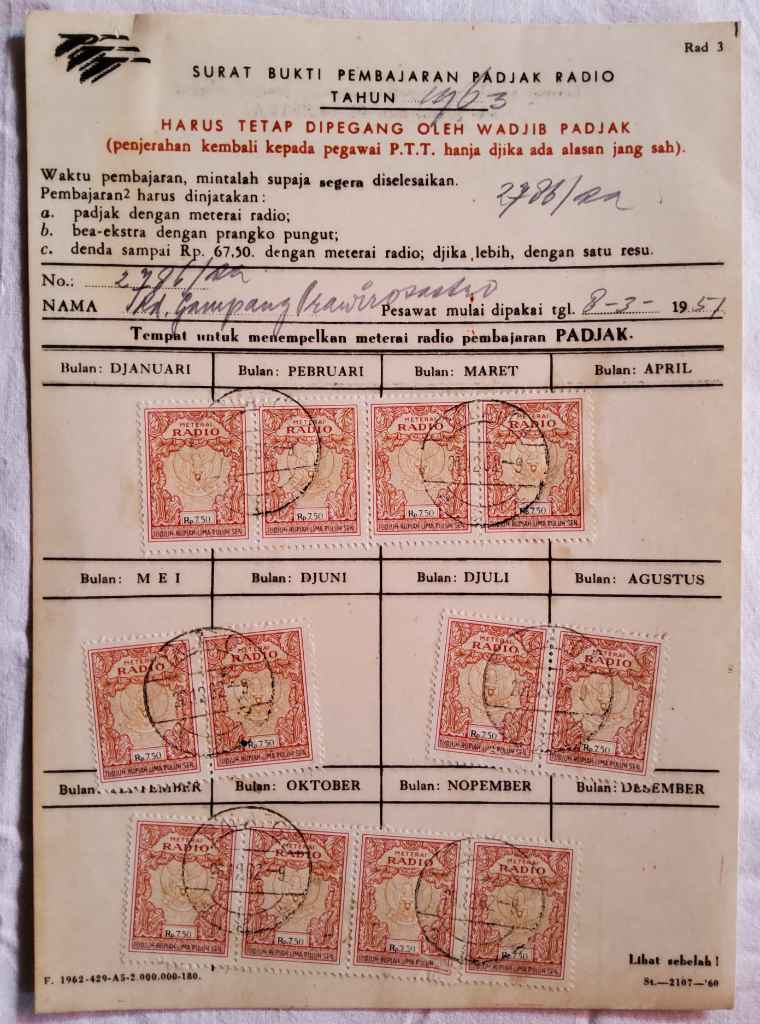 Rad 3
SURAT BUKTI PEMBAJARAN PADJAK RADIO
TAHUN 1963
HARUS TETAP DIPEGANG OLEH WADJIB PADJAK
(penjerahan kembali kepada pegawai P.T.T. hanja djika ada alasan jang sah).
Waktu pembajaran, mintalah supaja segera diselesaikan.
Pembajaran2 harus dinjatakan :
a. padjak dengan meterai radio;
b. bea-ekstra dengan prangko pungut;
c. denda sampai Rp. 67,50. dengan meterai radio; djika lebih, dengan satu resu.
No.: 2786/
NAMA Gampang Prawirosastro Pesawat mulai dipakai tgl. 8-3- 1951
Tempat untuk menempelkan meterai radio pembajaran PADJAK.
Bulan: DJANUARI Bulan: PEBRUARI Bulan: MARET Bulan: APRIL
METERAI RADIO METERAI RADIO METERAI RADIO METERAI RADIO
Rp.7.50 Rp.7.50 Rp.7.50 Rp.7.50
TUDJUH RUPIAH LIMA PULUH SEN TUDJUH RUPIAH LIMA PULUH SEN TUDJUH RUPIAH LIMA PULUH SEN TUDJUH RUPIAH LIMA PULUH SEN
Bulan: MEI Bulan: DJUNI Bulan: DJULI Bulan: AGUSTUS
METERAI RADIO METERAI RADIO METERAI RADIO METERAI RADIO
Rp.7.50 Rp.7.50 Rp.7.50 Rp.7.50
TUDJUH RUPIAH LIMA PULUH SEN TUDJUH RUPIAH LIMA PULUH SEN TUDJUH RUPIAH LIMA PULUH SEN TUDJUH RUPIAH LIMA PULUH SEN
Bulan: SEPTEMBER Bulan: OKTOBER Bulan: NOPEMBER Bulan: DESEMBER
METERAI RADIO METERAI RADIO METERAI RADIO METERAI RADIO
Rp.7.50 Rp.7.50 Rp.7.50 Rp.7.50
TUDJUH RUPIAH LIMA PULUH SEN TUDJUH RUPIAH LIMA PULUH SEN TUDJUH RUPIAH LIMA PULUH SEN TUDJUH RUPIAH LIMA PULUH SEN
Lihat sebelah !
F. 1962-429-A5-2.000.000-180. St.—2107—'60